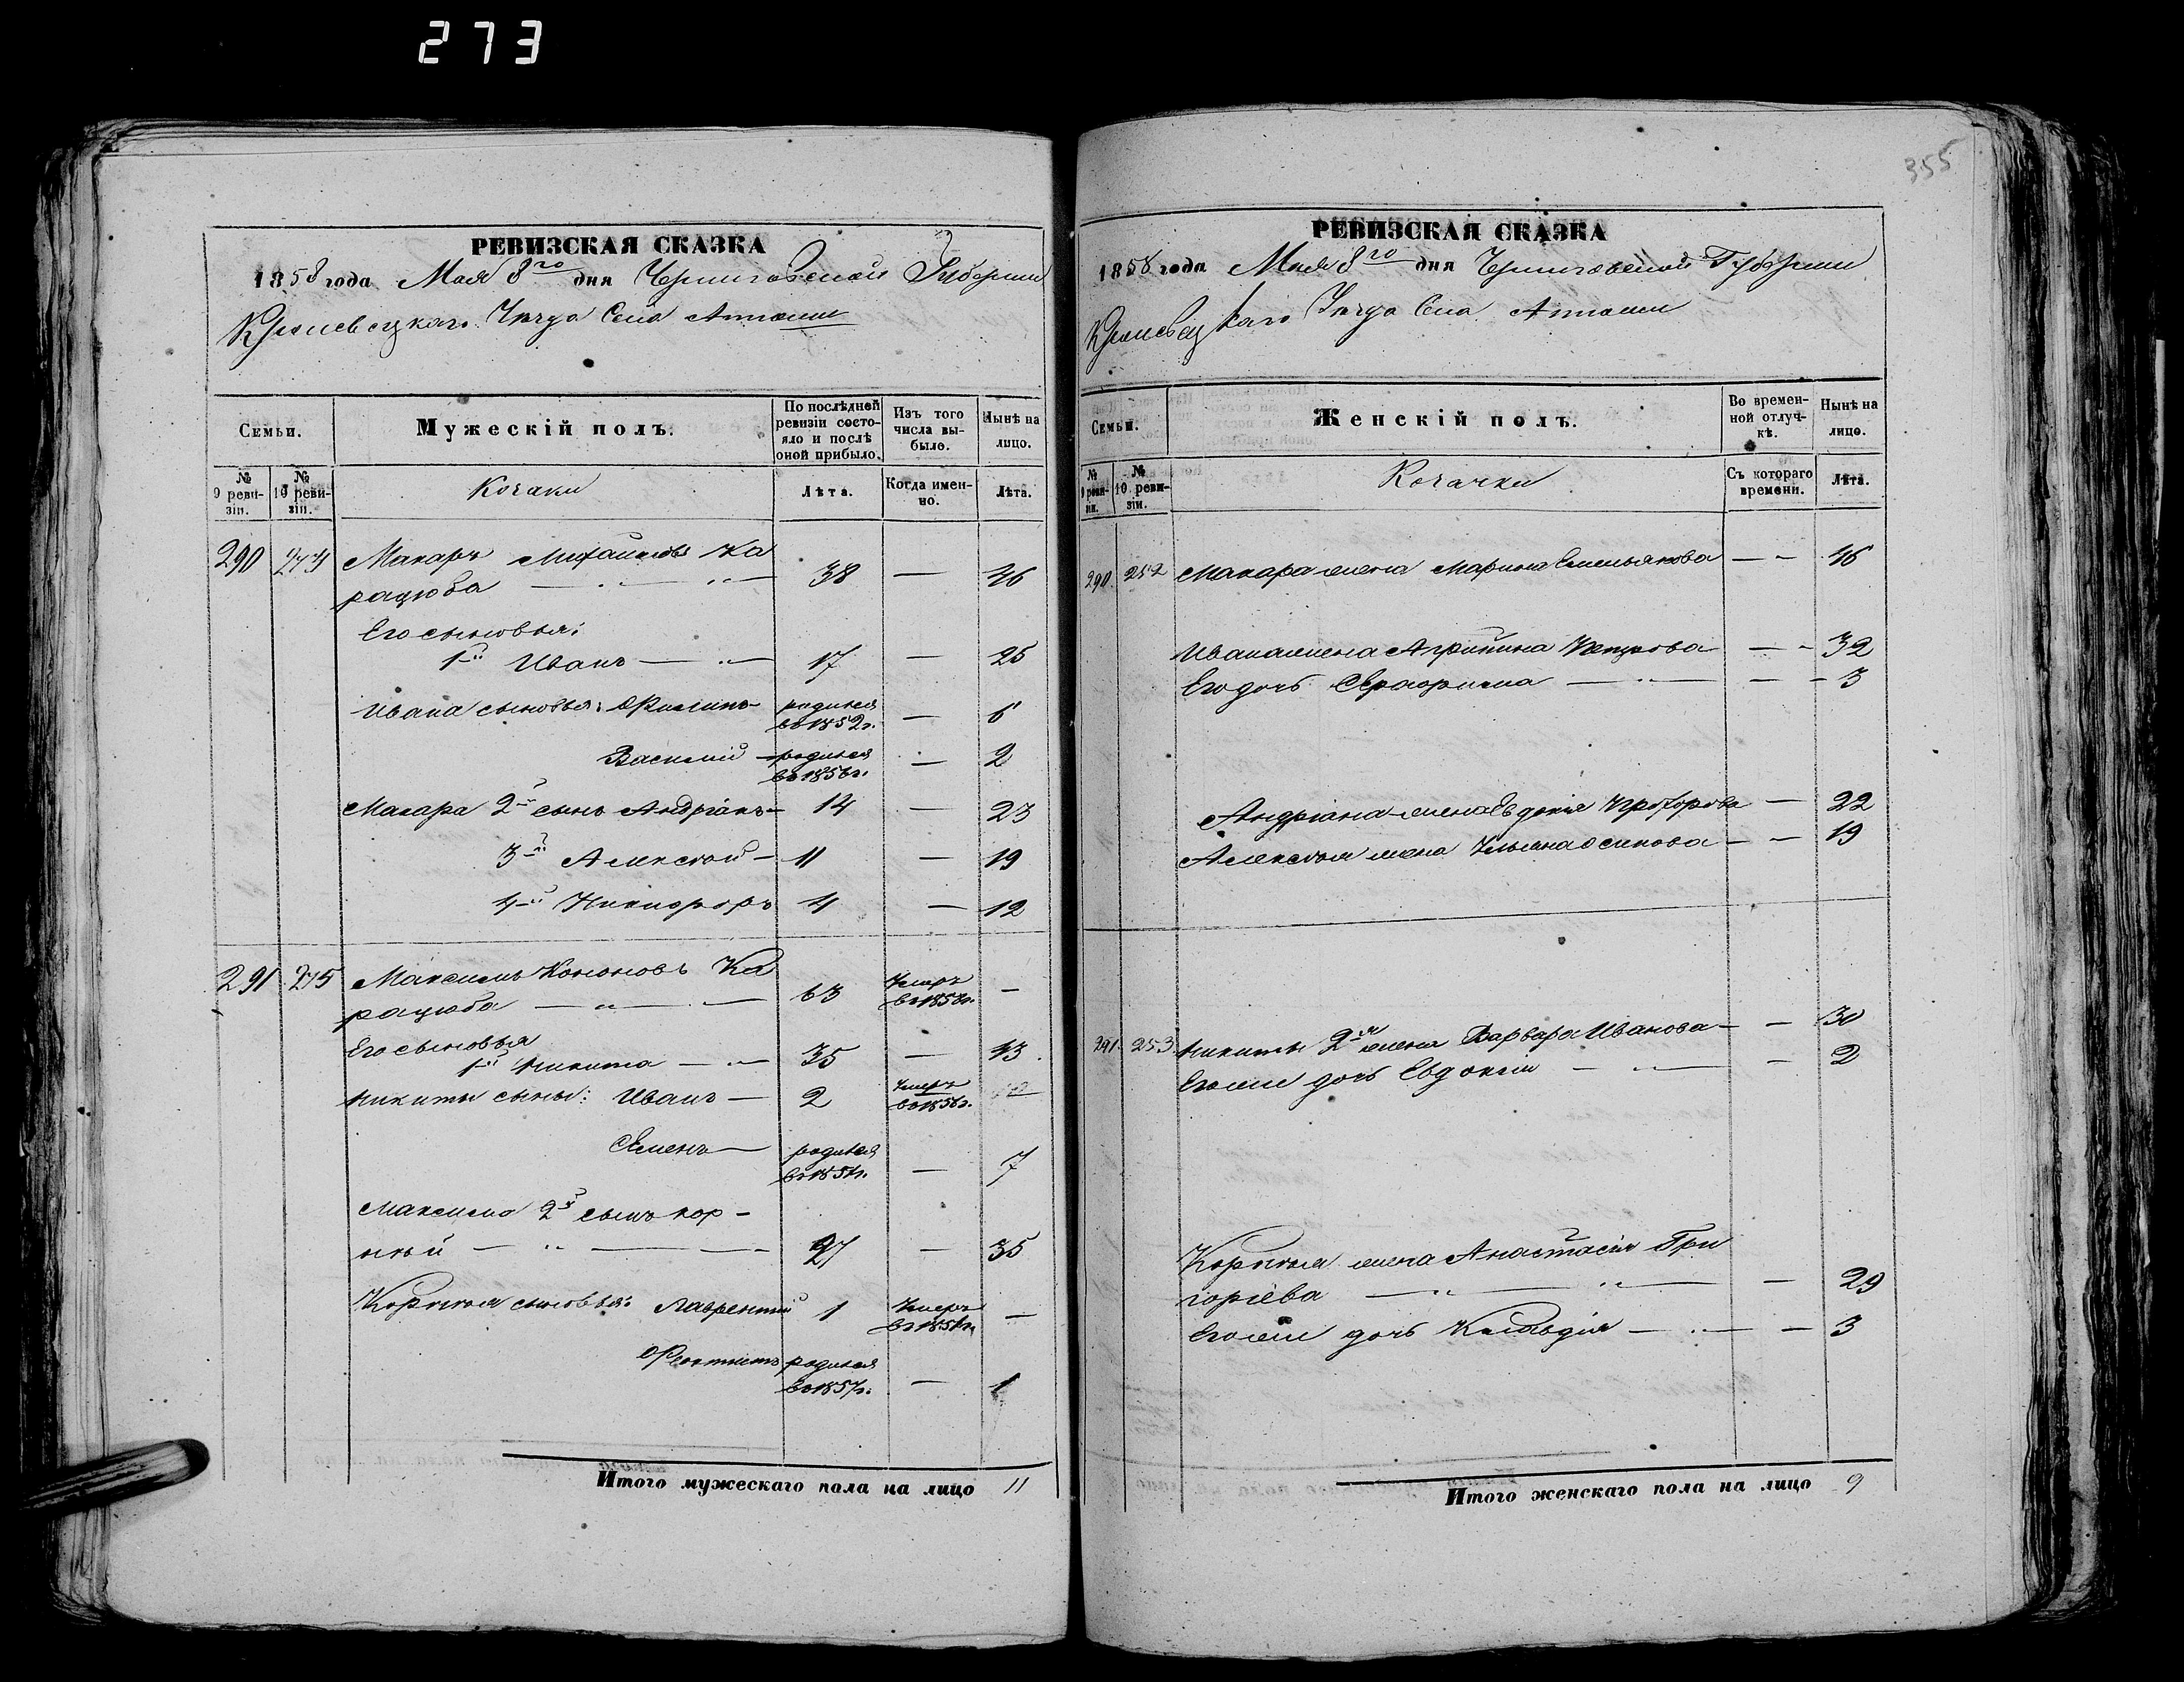 273
РЕВИЗСКАЯ СКАЗКА
1858 года Мая 8го дня Черниговской Губерніи
Кролевецкаго Уѣзда Села Атюши
Семьи.
Мужескій полъ.
По послѣдней ревизіи состояло и послѣ оной прибыло.
Изъ того числа выбыло.
Нынѣ на лицо.
№ 9 ревизіи.
№ 10 ревизіи.
Козаки
Лѣта.
Когда именно.
Лѣта.
290 274 Макаръ Михайловъ Ка
рацюба — 38 — 46
Его сыновья:
1й Иванъ — 17 — 25
Ивана сыновья: Филипъ — родился въ 1852г. — 6
Василий — родился въ 1856г. — 2
Макара 2й сынъ Андріанъ — 14 — 23
3й Алексѣй — 11 — 19
4й Никифоръ 4 — 12
291 275 Максимъ Кононовъ Ка
рацюба — 63 Умеръ въ 1858г. —
Его сыновья
1й Никита — 35 — 43
Никиты сыны: Иванъ — 2 Умеръ въ 1856г.
Семенъ — родился въ 1851г. — 7
Максима 2й сынъ Кор-
нѣй — 27 — 35
Корнѣя сыновья: Лаврентій 1 Умеръ въ 1851г. —
Феоктистъ родился въ 1857г. — 1
Итого мужескаго пола на лицо 11
355
РЕВИЗСКАЯ СКАЗКА
1858 года Мая 8го дня Черниговской Губерніи
Кролевецкаго Уѣзда Села Атюши
Семьи.
Женскій полъ.
Во временной отлучкѣ.
Нынѣ на лицо.
№ 9 ревизіи.
№ 10 ревизіи.
Козачки
Съ котораго времени.
Лѣта.
290. 252 Макара жена Марина Емельянова — — 46
Ивана жена Агрипина Петрова — — 32
Его дочь Евфросина — — — 3
Андріана жена Евдокія Прохорова — 22
Алексѣя жена Ульяна Осипова — — 19
291. 253 Никиты 2я жена Варвара Иванова — — 30
Его же дочь Евдокія — — 2
Корнѣя жена Анастасія Гри
горіева — — 29
Его же дочь Клавдія — — 3
Итого женскаго пола на лицо 9